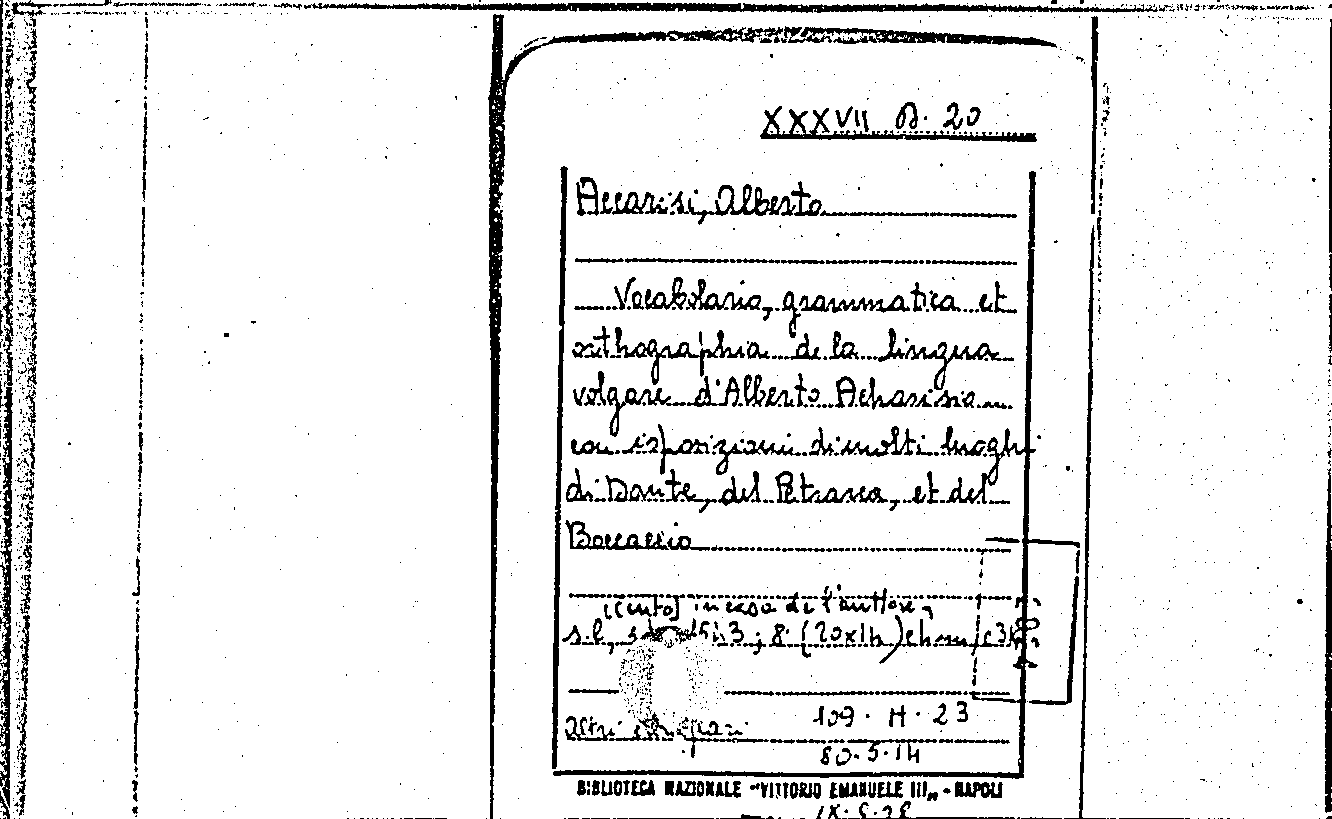 XXXVII A. 20
Accarisi, Alberto
Vocabolario, grammatica et
orthographia de la lingua
volgare d'Alberto Acharisio
con ispozizioni di molti luoghi
di Dante, del Petrarca, et del
Boccaccio
[Cento] in casa de l'auttore,
s.l., 1543; 8° (20x14)
altri esemplari 109. H. 23
80.5.14
BIBLIOTECA NAZIONALE "VITTORIO EMANUELE III„ - NAPOLI